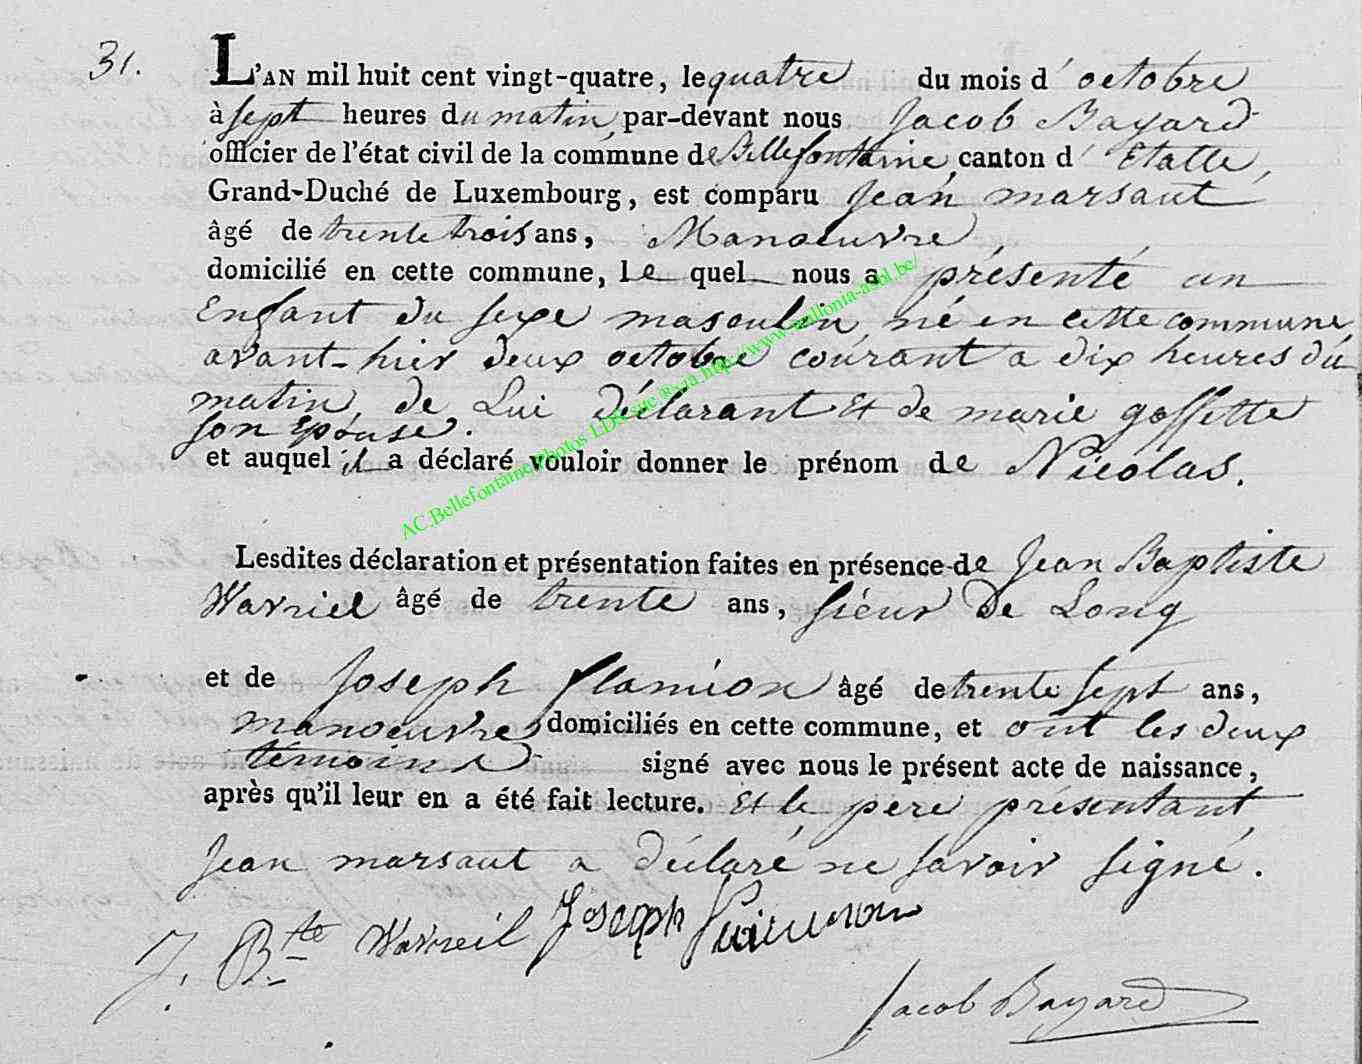 31.
L'AN mil huit cent vingt-quatre, le quatre du mois d'octobre
à sept heures du matin, par-devant nous Jacob Bayard
officier de l'état civil de la commune de Bellefontaine, canton d'Etalle,
Grand-Duché de Luxembourg, est comparu Jean marsaut
âgé de trente trois ans, Manoeuvre,
domicilié en cette commune, le quel nous a présenté un
Enfant du sexe masculin, né en cette commune,
avant-hier deux octobre courant a dix heures du
matin, de Lui déclarant Et de marie goffette
son Epouse.
et auquel il a déclaré vouloir donner le prénom de Nicolas.
AC.Bellefontaine Photos LDS site ®-cra http://www.wallonia-asbl.be/
Lesdites déclaration et présentation faites en présence de Jean Baptiste
Warriel âgé de trente ans, sieur De Long
et de Joseph flamion âgé de trente sept ans,
manoeuvre domiciliés en cette commune, et ont les deux
témoins signé avec nous le présent acte de naissance,
après qu'il leur en a été fait lecture. Et le pere présentant
Jean marsaut a déclaré ne savoir signé.
J. Bte Warreil Joseph
Jacob Bayard